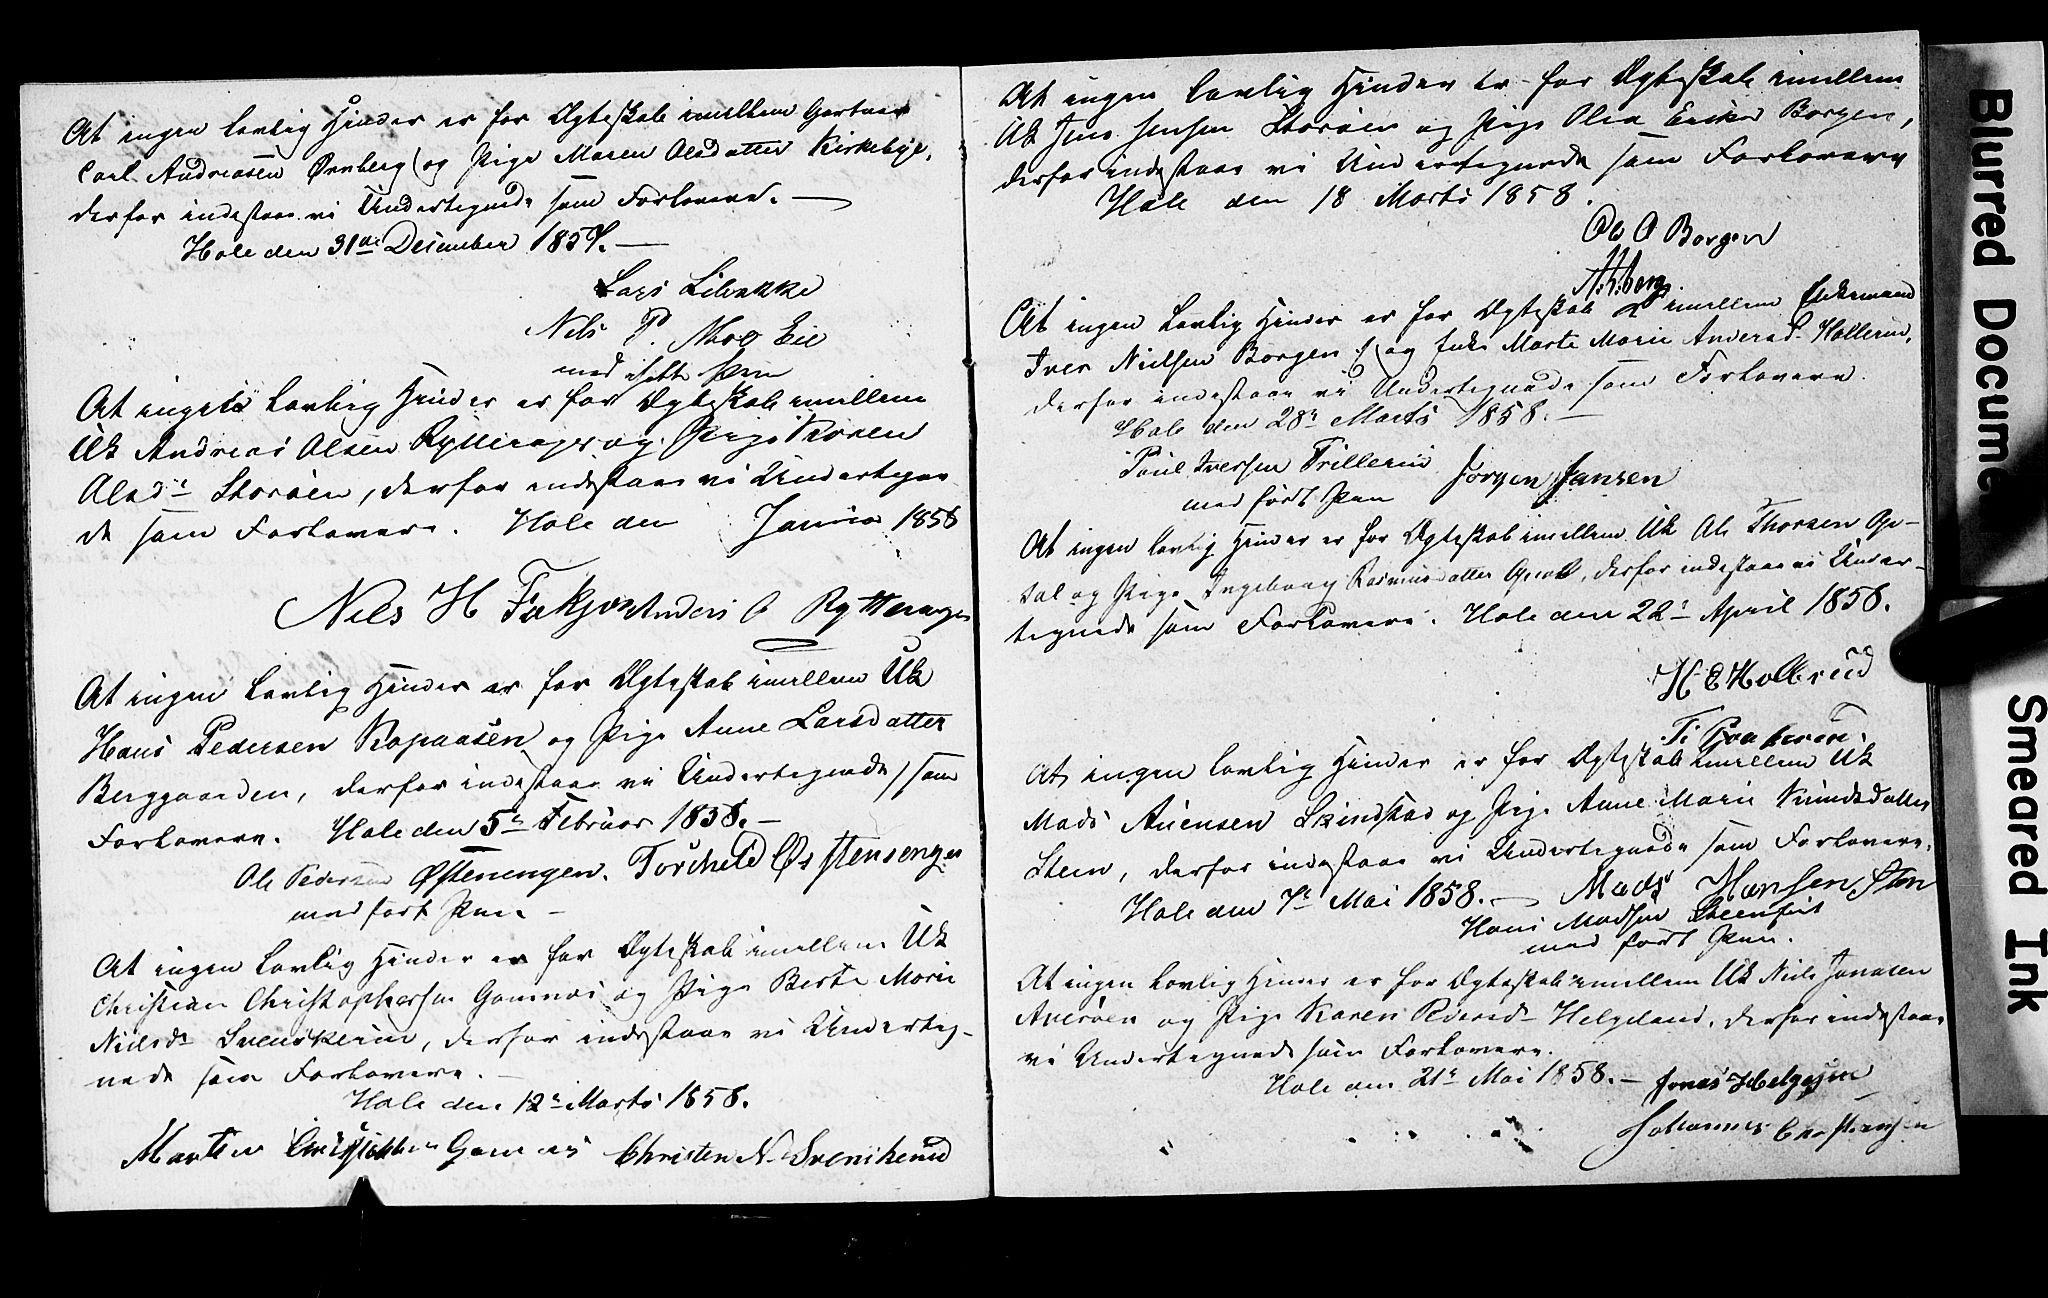 At ingen lovlig Hinder er for Ægteskab imellem Gartner
Carl Andreasen Ørnberg og Pige Maren Olsdatter Kirkebye,
derfor indestaae vi Undertegnede som Forlovere. —
Hole den 31te December 1857. —
Lars Libakke
Nels P. Moe Eie
med ført Pen
At ingen lovlig Hinder er for Ægteskab imellem
Uk Andreas Olsen Rytterager og Pige Karen
Olsdr Storøen, derfor indestaae vi Undertegne
de som Forlovere. Hole den Januar 1858
Nils H Anders O Rytterager
At ingen lovlig Hinder er for Ægteskab imellem Uk
Hans Pedersen og Pige Anne Larsdatter
Berggaarden, derfor indestaae vi Undertegnede som
Forlovere. Hole den 5te Februar 1858. —
Ole Pedersen Østenengen. Torchild Østensengen
med ført Pen. —
At ingen lovlig Hinder er for Ægteskab imellem Uk
Christian Christophersen Gomnæs og Pige Berte Marie
Nielsdr Svenskerud, derfor indestaae vi Underteg-
nede som Forlovere. —
Hole den 12te Marts 1858.
Marten Gomnes Christen N. Svenskerud
At ingen lovlig Hinder er for Ægteskab imellem
Uk Jens Jensen Storøen og Pige Olea Ericksd Borgen,
derfor indestaae vi Undertegnede som Forlovere
Hole den 18 Marts 1858.
Ole O Borgen
At ingen lovlig Hinder er for Ægteskab imellem Enkemand
Iver Nielsen Borgen og Enke Marte Marie Andersd. Hollerud,
derfor indestaae vi Undertegnede som Forlovere.
Hole den 28de Marts 1858. —
Paul Iversen Trillerud Jörgen Jansen
med ført Pen
At ingen lovlig Hinder er for Ægteskab imellem Uk Ole Thorsen Op-
sal og Pige Ingeborg Rasmusdatter Opsal, derfor indestaae vi Under-
tegnede som Forlovere. Hole den 22de April 1858.
H E Hollerud
At ingen lovlig Hinder er for Ægteskab imellem Uk
Mads Auensen Skindstad og Pige Anne Marie Knudsdatter
Steen, derfor indestaae vi Undertegnede som Forlovere.
Hole den 7de Mai 1858. — Mads Hansen Sten
Hans Madsen
med ført Pen.
At ingen lovlig Hinder er for Ægteskab imellem Uk Niels Jonasen
og Pige Karen Pedersdr Helgeland, derfor indestaae
vi Undertegnede som Forlovere.
Hole den 21de Mai 1858. — Jonas Helgesen
Johannes Christiansen
Blurred Docume
Smeared Ink